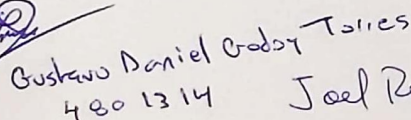 Gustavo Daniel Godoy Torres
480 13 14 Joel R